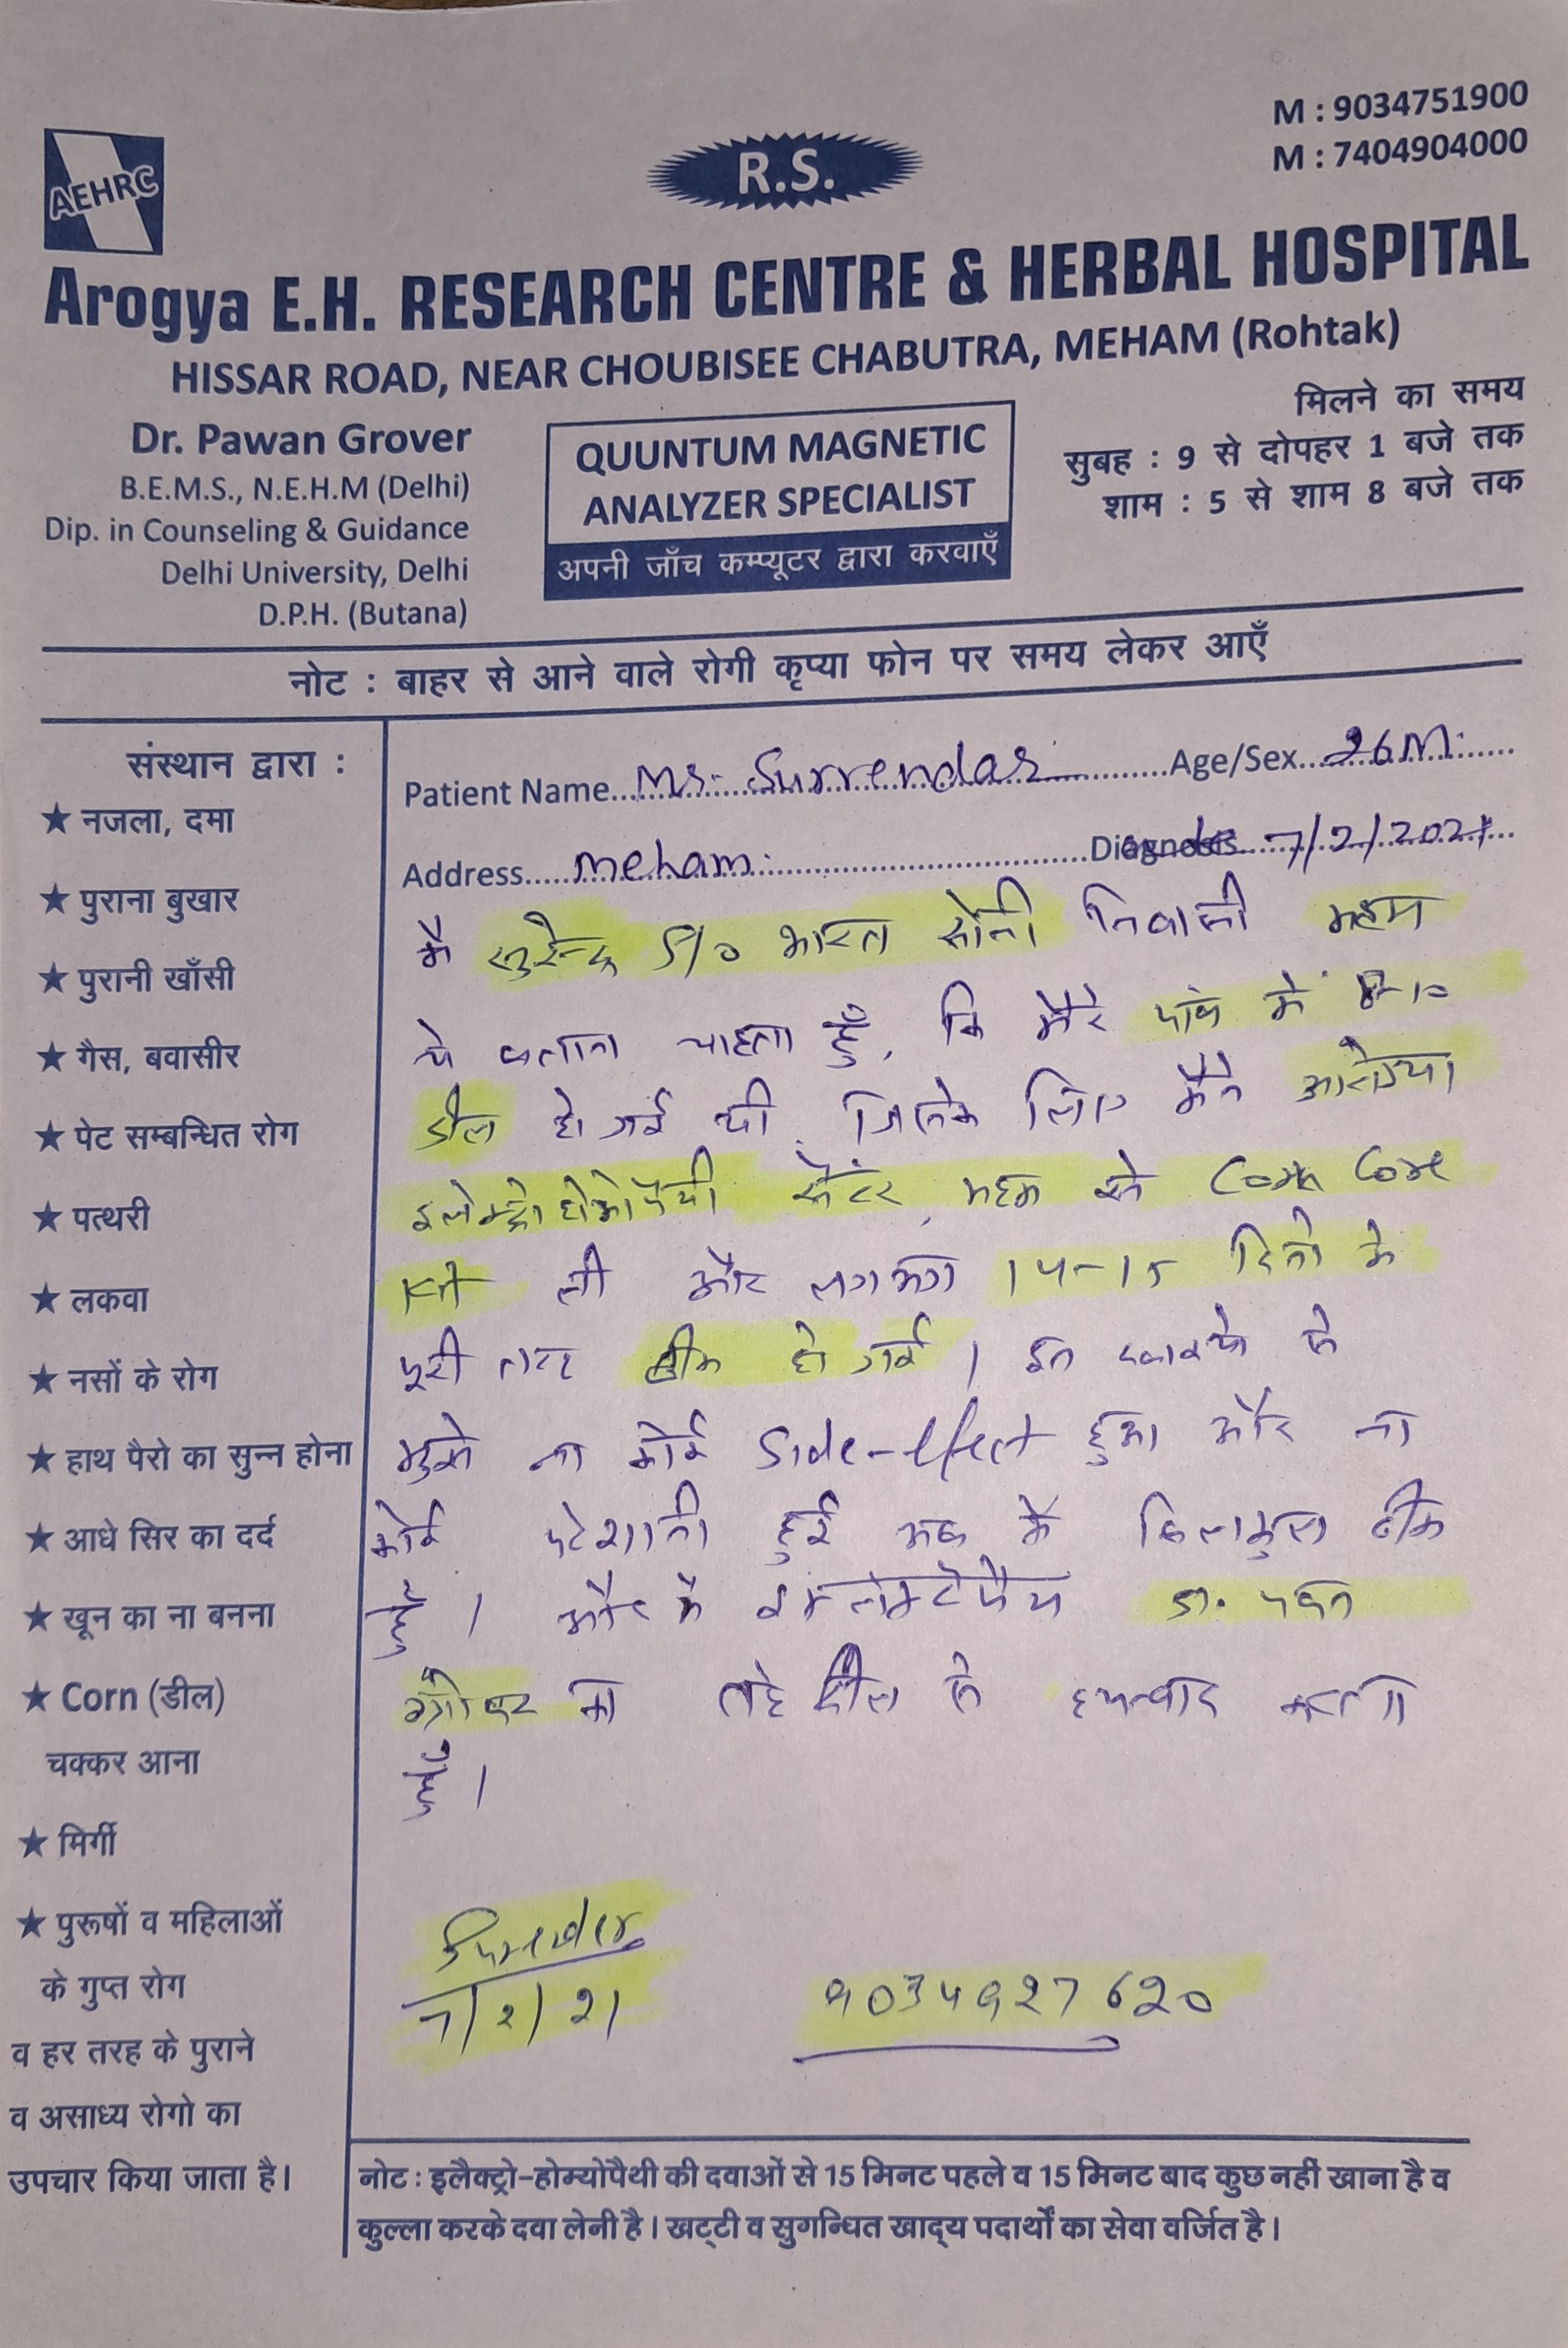 M : 9034751900
M : 7404904000
AEHRC
R.S.
Arogya E.H. RESEARCH CENTRE & HERBAL HOSPITAL
HISSAR ROAD, NEAR CHOUBISEE CHABUTRA, MEHAM (Rohtak)
Dr. Pawan Grover
B.E.M.S., N.E.H.M (Delhi)
Dip. in Counseling & Guidance
Delhi University, Delhi
D.P.H. (Butana)
QUUNTUM MAGNETIC
ANALYZER SPECIALIST
अपनी जाँच कम्प्यूटर द्वारा करवाएँ
मिलने का समय
सुबह : 9 से दोपहर 1 बजे तक
शाम : 5 से शाम 8 बजे तक
नोट : बाहर से आने वाले रोगी कृप्या फोन पर समय लेकर आएँ
संस्थान द्वारा :
★ नजला, दमा
★ पुराना बुखार
★ पुरानी खाँसी
★ गैस, बवासीर
★ पेट सम्बन्धित रोग
★ पत्थरी
★ लकवा
★ नसों के रोग
★ हाथ पैरो का सुन्न होना
★ आधे सिर का दर्द
★ खून का ना बनना
★ Corn (डील)
चक्कर आना
★ मिर्गी
★ पुरूषों व महिलाओं
के गुप्त रोग
व हर तरह के पुराने
व असाध्य रोगो का
उपचार किया जाता है।
Patient Name Mr. Surrendar Age/Sex 26 M.
Address Meham. Diagnosis 7/2/2021
मै सुरेन्द्र S/o भारत सोनी निवासी महम
ये बताना चाहता हूँ, कि मेरे पांव मे 8-10
डील हो गई थी, जिसके लिए मैने आरोग्या
इलेक्ट्रो होम्योपैथी सेंटर, महम से Corn Core
किट ली और लगभग 14-15 दिनो के
पूरी तरह ठीक हो गई। इस से
मुझे ना कोई Side-effect हुआ और ना
कोई परेशानी हुई अब मै बिलकुल ठीक
हूँ। और मै डा. पवन
ग्रोवर का तहे दील से धन्यवाद करता
हूँ।
Surender
7/2/21
9034927620
नोट : इलैक्ट्रो-होम्योपैथी की दवाओं से 15 मिनट पहले व 15 मिनट बाद कुछ नहीं खाना है व
कुल्ला करके दवा लेनी है। खट्टी व सुगन्धित खाद्य पदार्थों का सेवा वर्जित है।